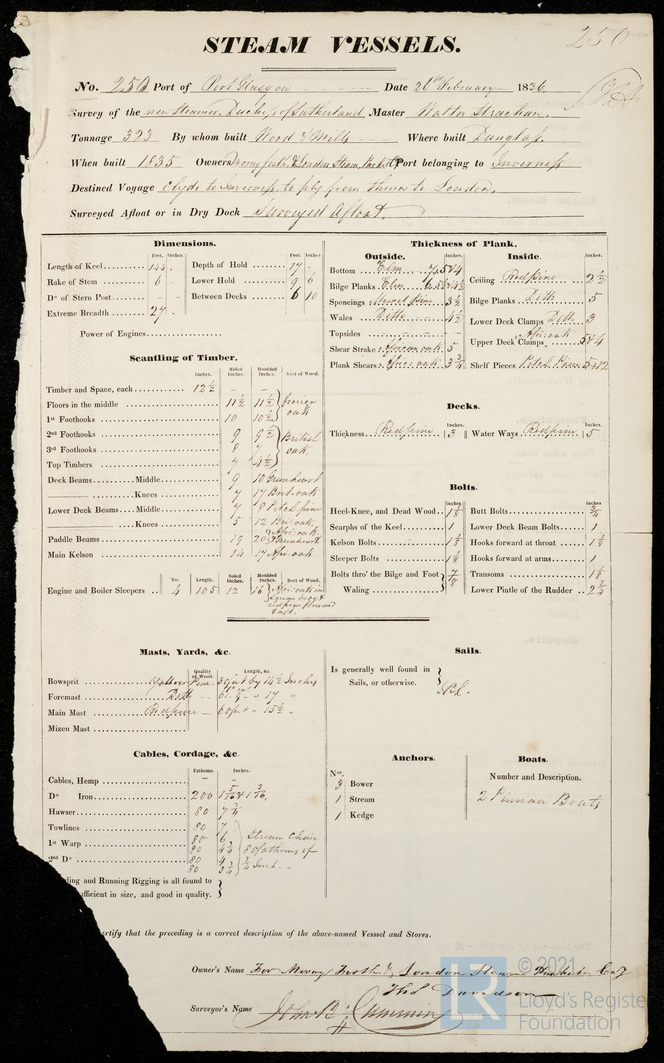 250
STEAM VESSELS.
No. 250 Port of Port Glasgow Date 26th February 1836
Survey of the new Steamer, Duchess of Sutherland Master Walter Strachan
Tonnage 323 By whom built Wood & Mills Where built Dunglass.
When built 1835 Owners Moray Firth & London Steam Packet Co Port belonging to Inverness
Destined Voyage Clyde to Inverness, to ply from thence to London.
Surveyed Afloat or in Dry Dock Surveyed Afloat.
Dimensions.
Feet. Inches. Feet. Inches
Length of Keel 144 . Depth of Hold 17 .
Rake of Stem 6 Lower Hold 9 6
Do of Stern Post - - Between Decks 6 10
Extreme Breadth 27 .
Power of Engines
Scantling of Timber.
Sided Inches. Moulded Inches. Sort of Wood.
Timber and Space, each 12 ½ - -
Floors in the middle 11 ½ 11 ½ foreign
1st Foothooks 10 10 ½ oak
2nd Foothooks 9 9 ½ British
3rd Foothooks 8 7 oak.
Top Timbers 7 4 ½
Deck Beams Middle 9 10 Greenheart
Knees 7 17 Brit. oak
Lower Deck Beams Middle 7 8 Pitch pine
Knees 5 12 Br. oak,
Paddle Beams 19 20 Afri. oak & Greenheart
Main Kelson 14 17 Afri. oak
No. Length. Sided Inches Moulded Inches. Sort of Wood.
Engine and Boiler Sleepers 4 105 12 16 Afri. oak in
Engine body &
redpine forward
& aft.
Thickness of Plank.
Outside. Inches. Inside. Inches.
Bottom Elm 4 Ceiling Red pine 2 ½
Bilge Planks Elm Bilge Planks Ditto 5
Sponcings pine 3 ½ Lower Deck Clamps Ditto 3
Wales Ditto 4 ½ Upper Deck Clamps Afri. oak 5 & 4
Topsides - - Shelf Pieces Pitch Pine 5 & 12
Shear Strake African oak 5
Plank Shears Afri. oak 3 ¾
Decks.
Thickness Red pine 3 Water Ways Red pine 5
Bolts.
Inches. Inches.
Heel-Knee, and Dead Wood 1 ⅛ Butt Bolts ¾
Scarphs of the Keel 1 Lower Deck Beam Bolts 1
Kelson Bolts 1 ⅛ Hooks forward at throat 1 ⅛
Sleeper Bolts 1 ⅛ Hooks forward at arms 1
Bolts thro' the Bilge and Foot ⅞ Transoms 1 ⅛
Waling Lower Pintle of the Rudder 2 ¾
Masts, Yards, &c.
Quality of Wood. Length, &c
Bowsprit Yellow Pine 30 feet by 14 ½ Inches
Foremast Ditto 17 "
Main Mast Redpine 60 feet 15 ½ "
Mizen Mast
Sails.
Is generally well found in
Sails, or otherwise.
Cables, Cordage, &c.
Fathoms. Inches.
Cables, Hemp - -
Do Iron 200 1 5/16 & 1 3/16
Hawser 80 7 ½
Towlines 80 7 Stream Chain
1st Warp 80 6 80 fathoms of
80 4 ¾ ¾ Inch.
2nd Do 80 4
80 3 ¾
ding and Running Rigging is all found to
fficient in size, and good in quality.
Anchors.
Nos.
3 Bower
1 Stream
1 Kedge
Boats.
Number and Description.
2 Pinnace Boats
rtify that the preceding is a correct description of the above-named Vesssel and Stores.
Owner's Name For Moray Firth & London Steam Packet Coy
Thos Davidson
Surveyor's Name John B. Cumming
LR
© 2021
Lloyd's Register
Foundation